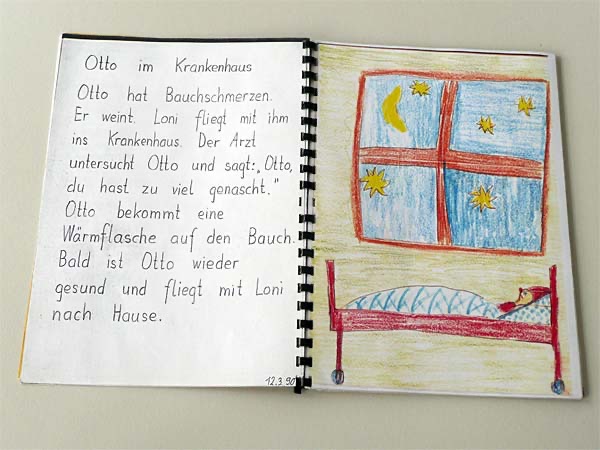 Otto im Krankenhaus
Otto hat Bauchschmerzen.
Er weint. Loni fliegt mit ihm
ins Krankenhaus. Der Arzt
untersucht Otto und sagt: „Otto,
du hast zu viel genascht."
Otto bekommt eine
Wärmflasche auf den Bauch.
Bald ist Otto wieder
gesund und fliegt mit Loni
nach Hause.
12.3.90